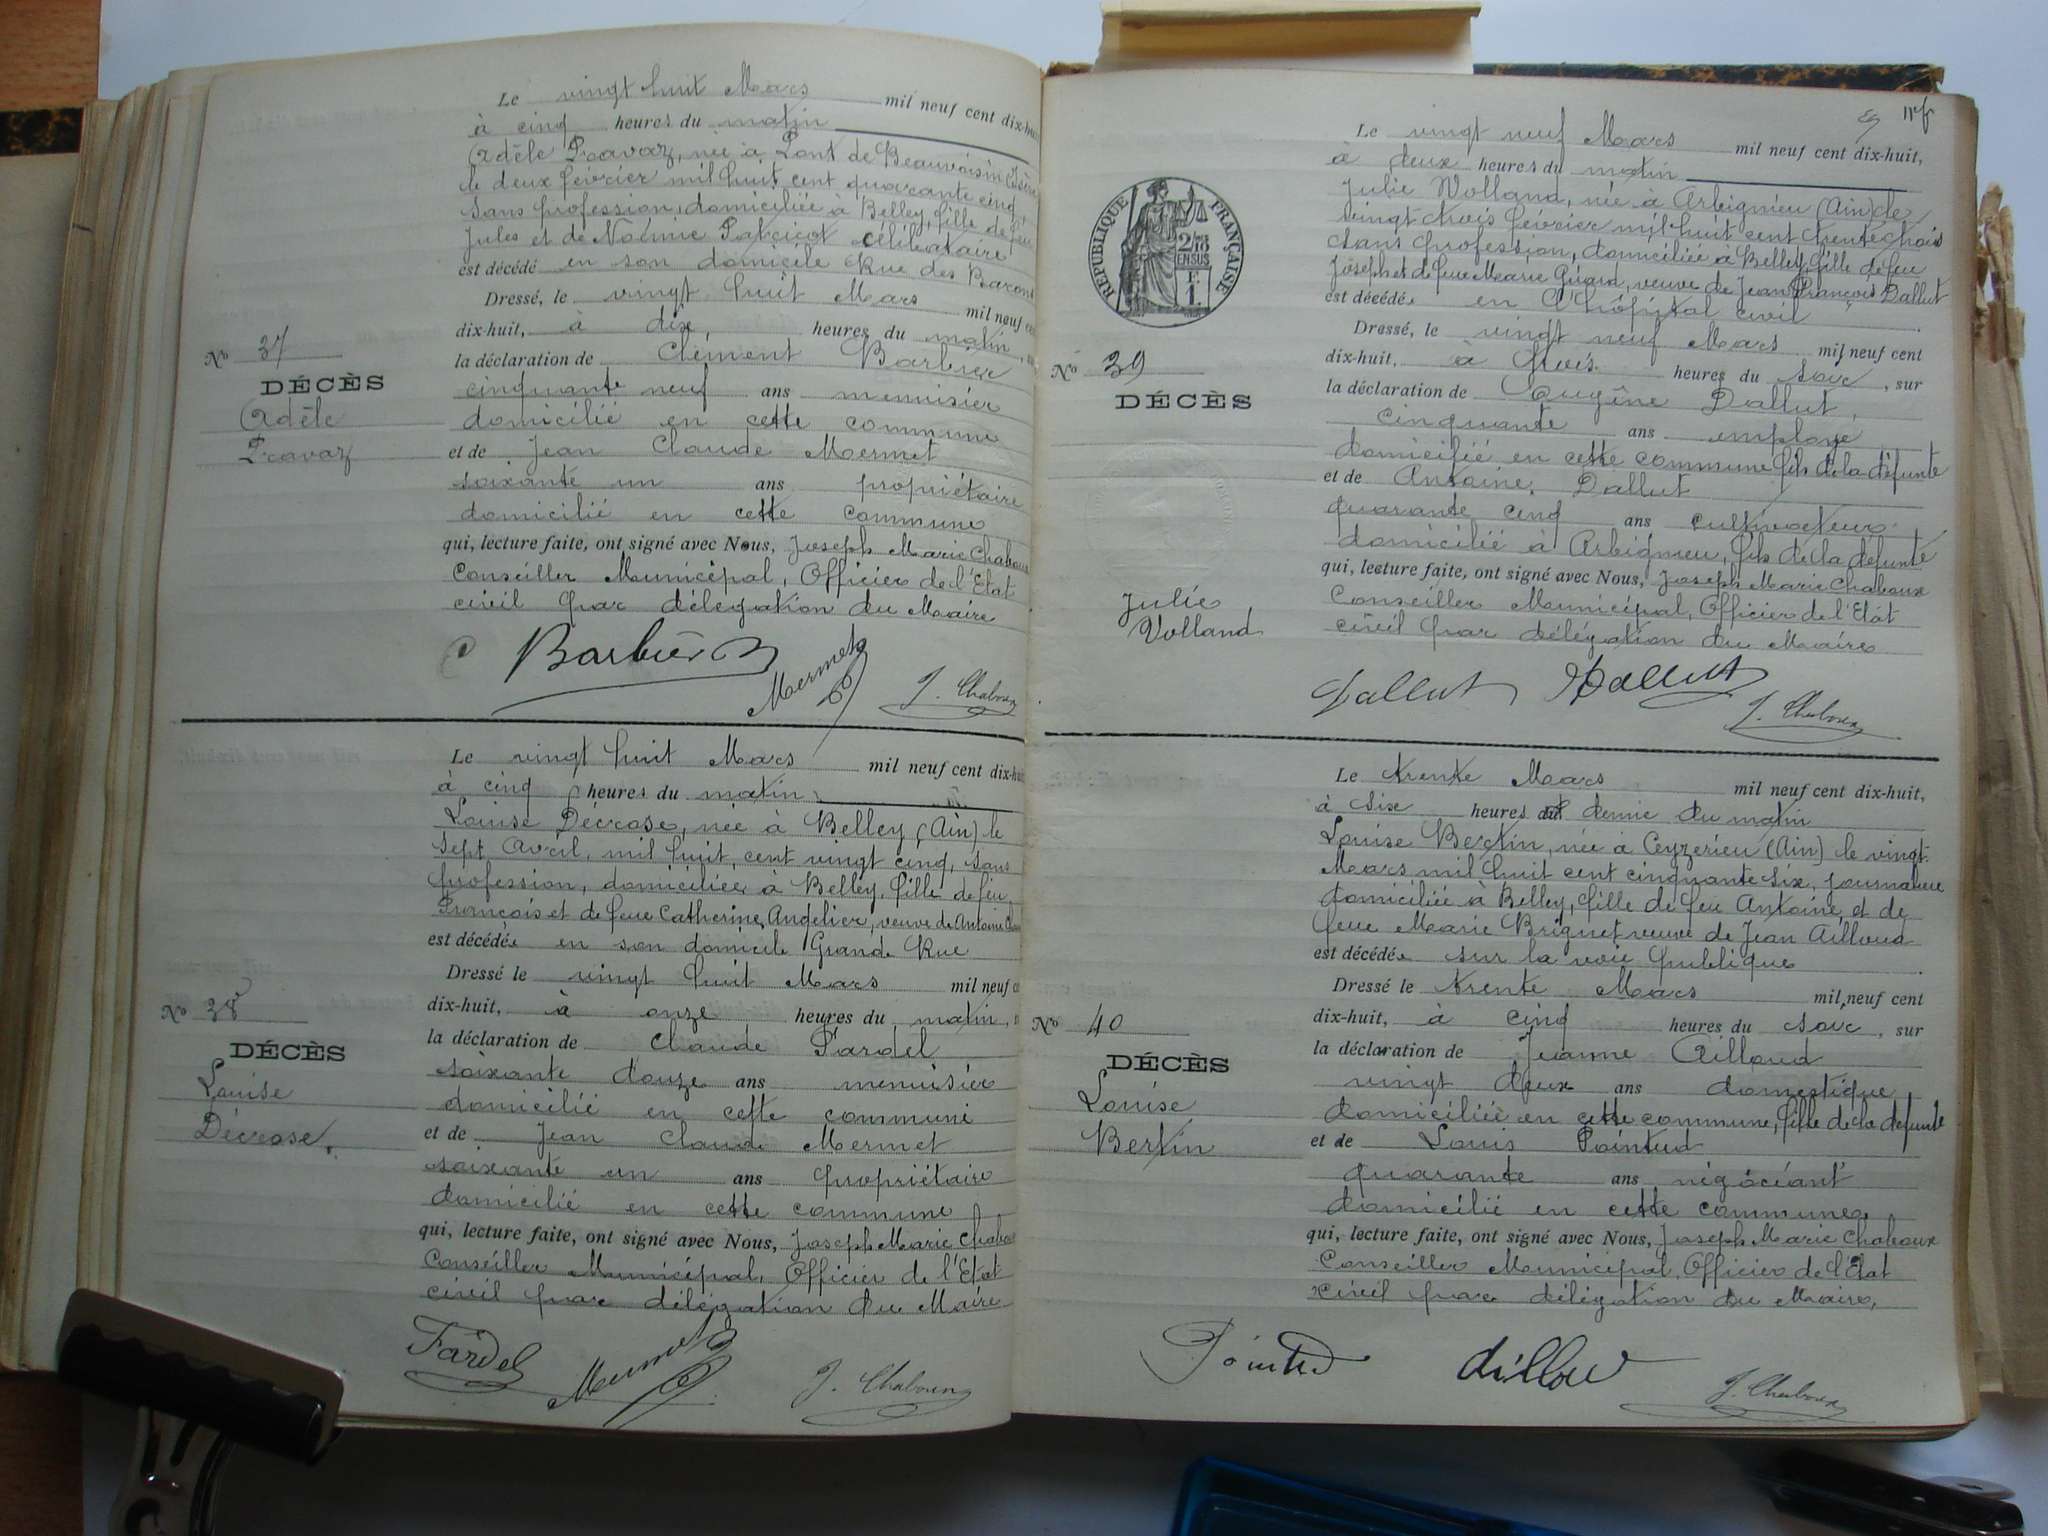 Le vingt huit Mars mil neuf cent dix-hu
à cinq heures du matin
Adèle Pravaz, née à Pont de Beauvoisin (Isère
le deux février mil huit cent quarante cinq,
sans profession, domiciliée à Belley, fille de feu
Jules et de Noémie Patricot célibataire
est décédé en son domicile Rue des Barons
Dressé, le vingt huit Mars mil neuf ce
dix-huit, à dix, heures du matin,
la déclaration de Clément Barbier
cinquante neuf ans menuisier
domicilié en cette commune
et de Jean Claude Mermet
soixante un ans propriétaire
domicilié en cette commune
qui, lecture faite, ont signé avec Nous, Joseph Marie Chaboux
Conseiller Municipal, Officier de l'Etat
civil par délégation du Maire
No 37
DÉCÈS
Adèle
Pravaz
C Barbier
Mermet
J. Chaboux
Le vingt huit Mars mil neuf cent dix-hu
à cinq heures du matin
Louise Décrose, née à Belley (Ain) le
sept Avril, mil huit cent vingt cinq, sans
profession, domiciliée à Belley, fille de feu
François et de feue Catherine Andelier, veuve de Antoine
est décédée en son domicile Grande Rue
Dressé le vingt huit Mars mil neuf c
dix-huit, à onze heures du matin,
la déclaration de Claude Fardel
soixante douze ans menuisier
domicilié en cette commune
et de Jean Claude Mermet
soixante un ans propriétaire
domicilié en cette commune
qui, lecture faite, ont signé avec Nous, Joseph Marie Chabo
Conseiller Municipal, Officier de l'Etat
civil par délégation du Maire
No 38
DÉCÈS
Louise
Décrose
Fardel
Mermet
J. Chaboux
Le vingt neuf Mars mil neuf cent dix-huit,
à deux heures du matin
Julie Volland, née à Arbignieu (Ain) le
vingt trois février mil huit cent trente trois
sans profession, domiciliée à Belley, fille de feu
Joseph et de feue Marie Guard, veuve de Jean François Dallut
est décédée en l'hôpital civil
Dressé, le vingt neuf Mars mil neuf cent
dix-huit, à trois heures du soir, sur
la déclaration de Eugène Dallut,
cinquante ans employé
domicilié en cette commune fils de la défunte
et de Antoine Dallut
quarante cinq ans cultivateur
domicilié à Arbignieu, fils de la défunte
qui, lecture faite, ont signé avec Nous, Joseph Marie Chaboux
Conseiller Municipal, Officier de l'Etat
civil par délégation du Maire
RÉPUBLIQUE FRANÇAISE
2/10
EN SUS
F.
1.
No 39
DÉCÈS
Julie
Volland
Dallut Dallut
J. Chaboux
Le trente Mars mil neuf cent dix-huit,
à six heures et demie du matin
Louise Bertin, née à Ceyzerieu (Ain) le vingt
Mars mil huit cent cinquante six, journalière
domiciliée à Belley, fille de feu Antoine et de
feue Marie Brignet veuve de Jean Ailloud
est décédée sur la voie publique
Dressé le trente Mars mil neuf cent
dix-huit, à cinq heures du soir, sur
la déclaration de Jeanne Ailloud
vingt deux ans domestique
domiciliée en cette commune, fille de la défunte
et de Louis Pointud
quarante ans négociant
domicilié en cette commune
qui, lecture faite, ont signé avec Nous, Joseph Marie Chaboux
Conseiller Municipal, Officier de l'Etat
civil par délégation du Maire,
No 40
DÉCÈS
Louise
Bertin
Pointud
J. Chaboux